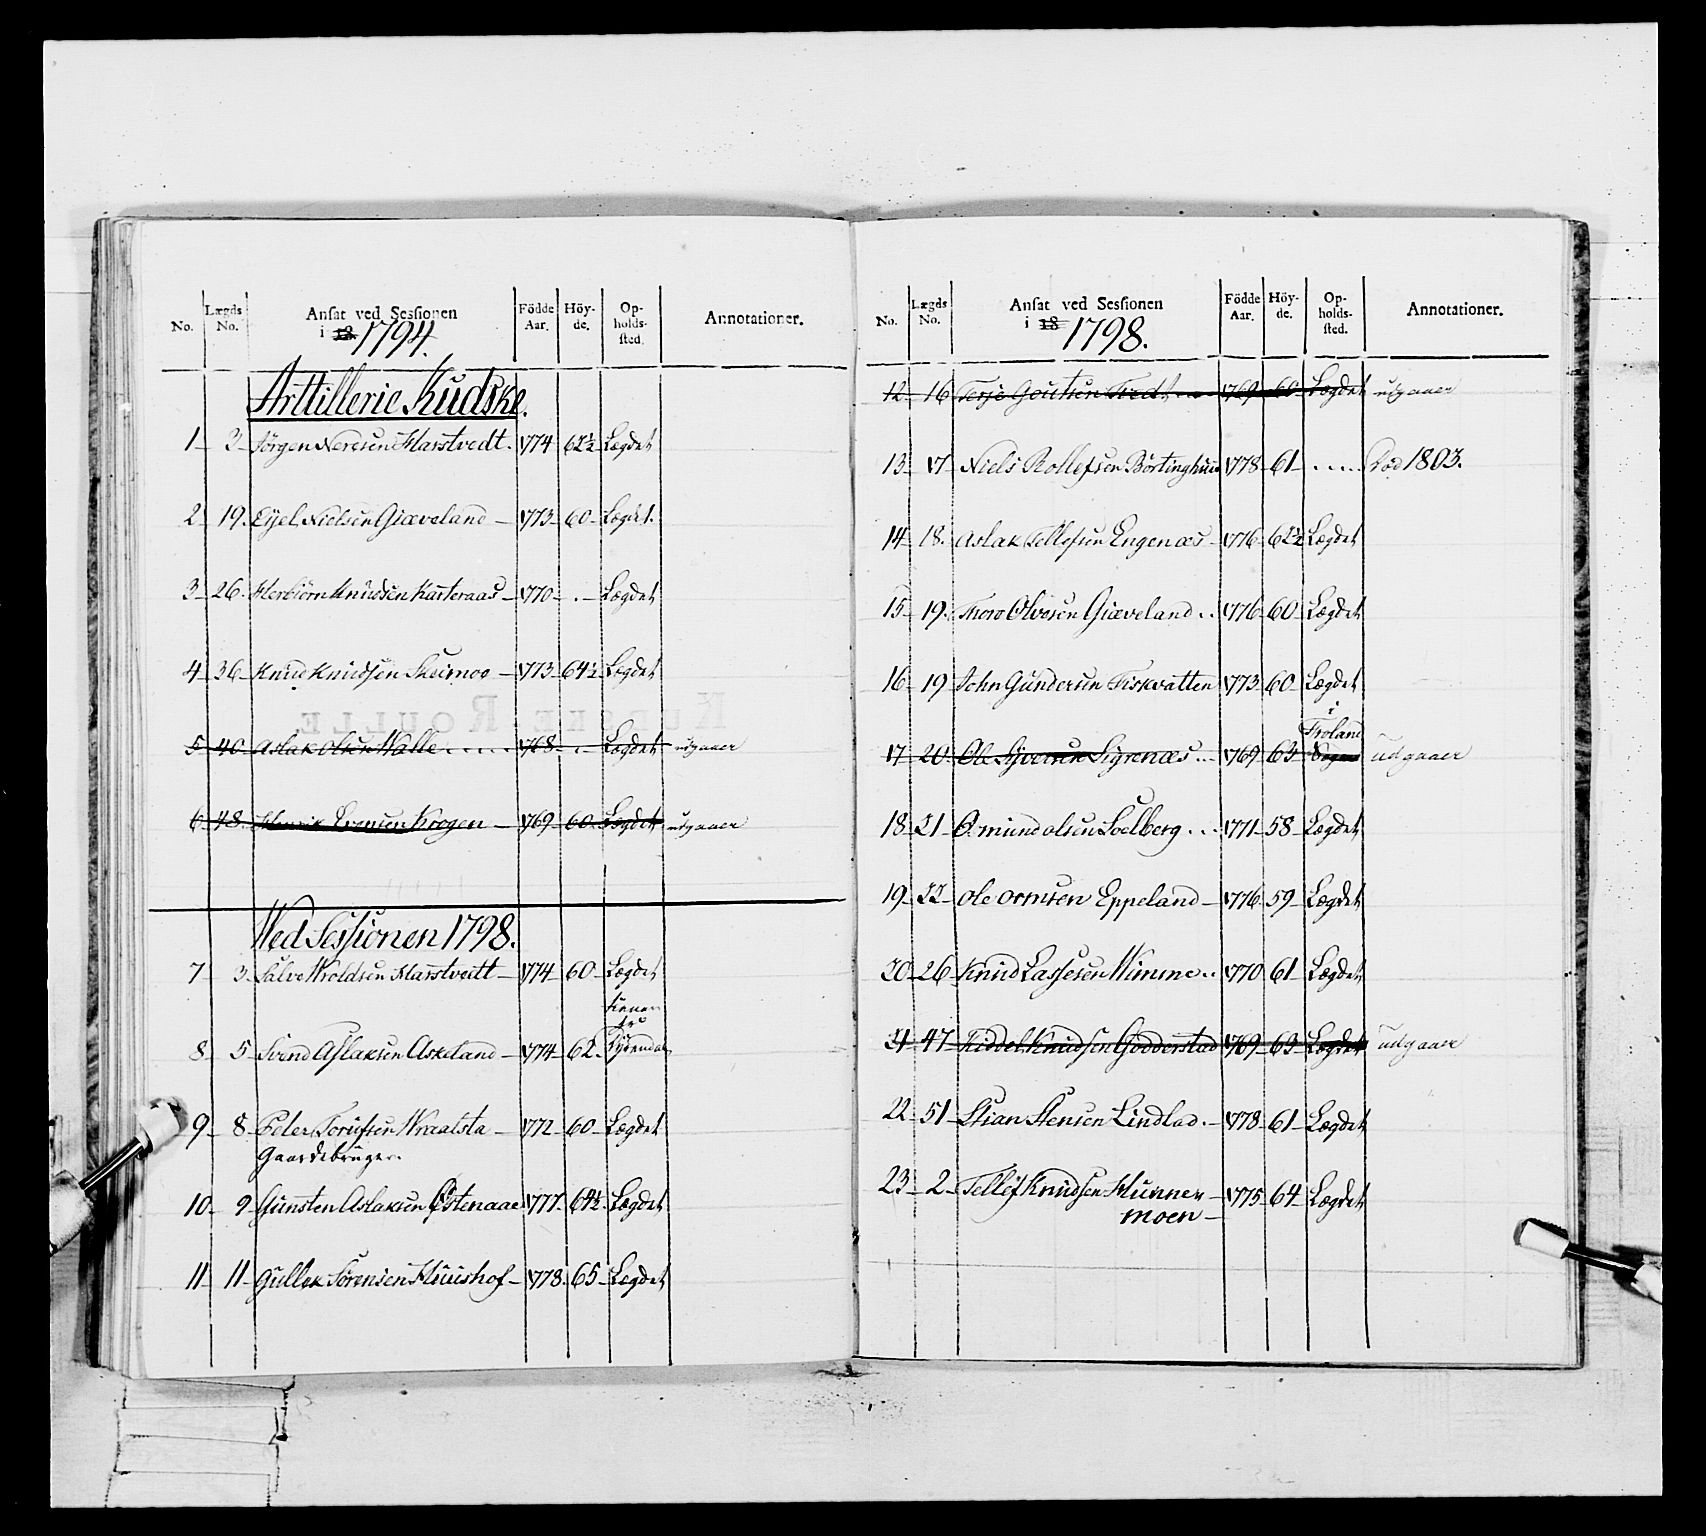 No. Lægds No. Ansat ved Sessionen i 18 1794. Födde Aar. Höy- de. Op- holds- sted. Annotationer.
Arttillerie Kudske.
1 2 Jörgen Neresen Harstvedt. 1774 62½ Lægdet
2 19. Eyel Nielsen Giæveland 1773 60 Lægdet.
3 26. Herbiörn Knudsen Kasteraas 1770 . Lægdet
4 36 Knud Knudsen Skeimoe 1773 64½ Lægdet
5 40 Aslak Olsen Walle 1768 . Lægdet udgaaer
6 48. Henrik Evensen Krogen 1769 60 Lægdet udgaaer
Wed Sessionen 1798.
7 3 Salve Wroldsen Harstvedt 1774 60 Lægdet
8 5 Svend Aslaksen Askeland 1774 62 tienner
9 8 Peder Wraalsta 1772 60 Lægdet
Gaardebruger.
10 9 Gunsten Aslaksen Östenaae 1777. 64½ Lægdet
11 11 Gullek Sörensen Huushof 1778. 65 Lægdet
No. Lægds No. Ansat ved Sessionen i 18 1798. Födde Aar. Höy- de. Op- holds- sted. Annotationer.
12 16 Terje 1769 60 Lægdet udgaaer
13 17 Niels Rollefsen Börtinghuus 1778 61 ..... Död 1803.
14 18. Aslak Tellefsen Engenæs 1776 62½ Lægdet
15 19. Thoro Olvesen Giæveland 1776 60 Lægdet
16 19 John Gundersen Fiskvatten 1773 60 Lægdet
i
Froland
17 20 Ole Syversen Sigrenæs 1769 63 Sogn udgaaer
18 21 Omund Olsen Soelberg 1771 58 Lægdet
19 22 Ole Ormsen Eppeland 1776 59 Lægdet
20 26 Knud Lassesen Wimme 1770 61 Lægdet
21 47 Fiddel Knudsen Godderstad 1769 63 Lægdet udgaaer
22 51 Stian Stensen Lindlad. 1778 61 Lægdet
23 2 Tellef Knudsen Hunne
moen 1775 64 Lægdet